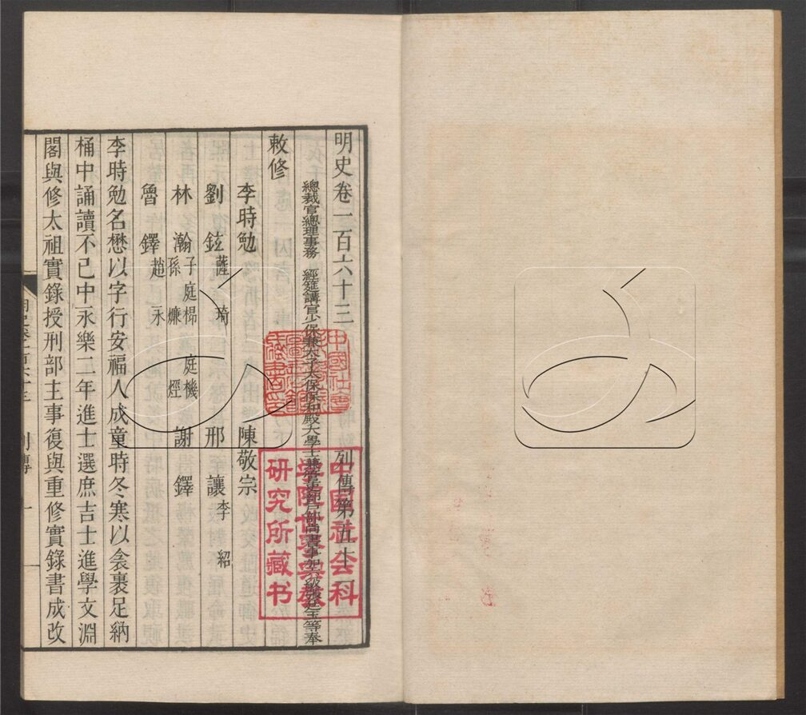 明史卷一百六十三 列傳第五十一
總裁官總理事務 經筵講官少保兼太子太保保和殿大學士兼管吏部戶部尚書事加六級張廷玉等奉
敕修
李時勉 陳敬宗
劉鉉 薩琦 邢讓 李紹
林瀚 子庭㭿 庭機 孫燫 烴 謝鐸
魯鐸 趙永
李時勉名懋以字行安福人成童時冬寒以衾裹足納
桶中誦讀不已中永樂二年進士選庶吉士進學文淵
閣與修太祖實錄授刑部主事復與重修實錄書成改
中國社會科
學院世界宗教
研究所藏书